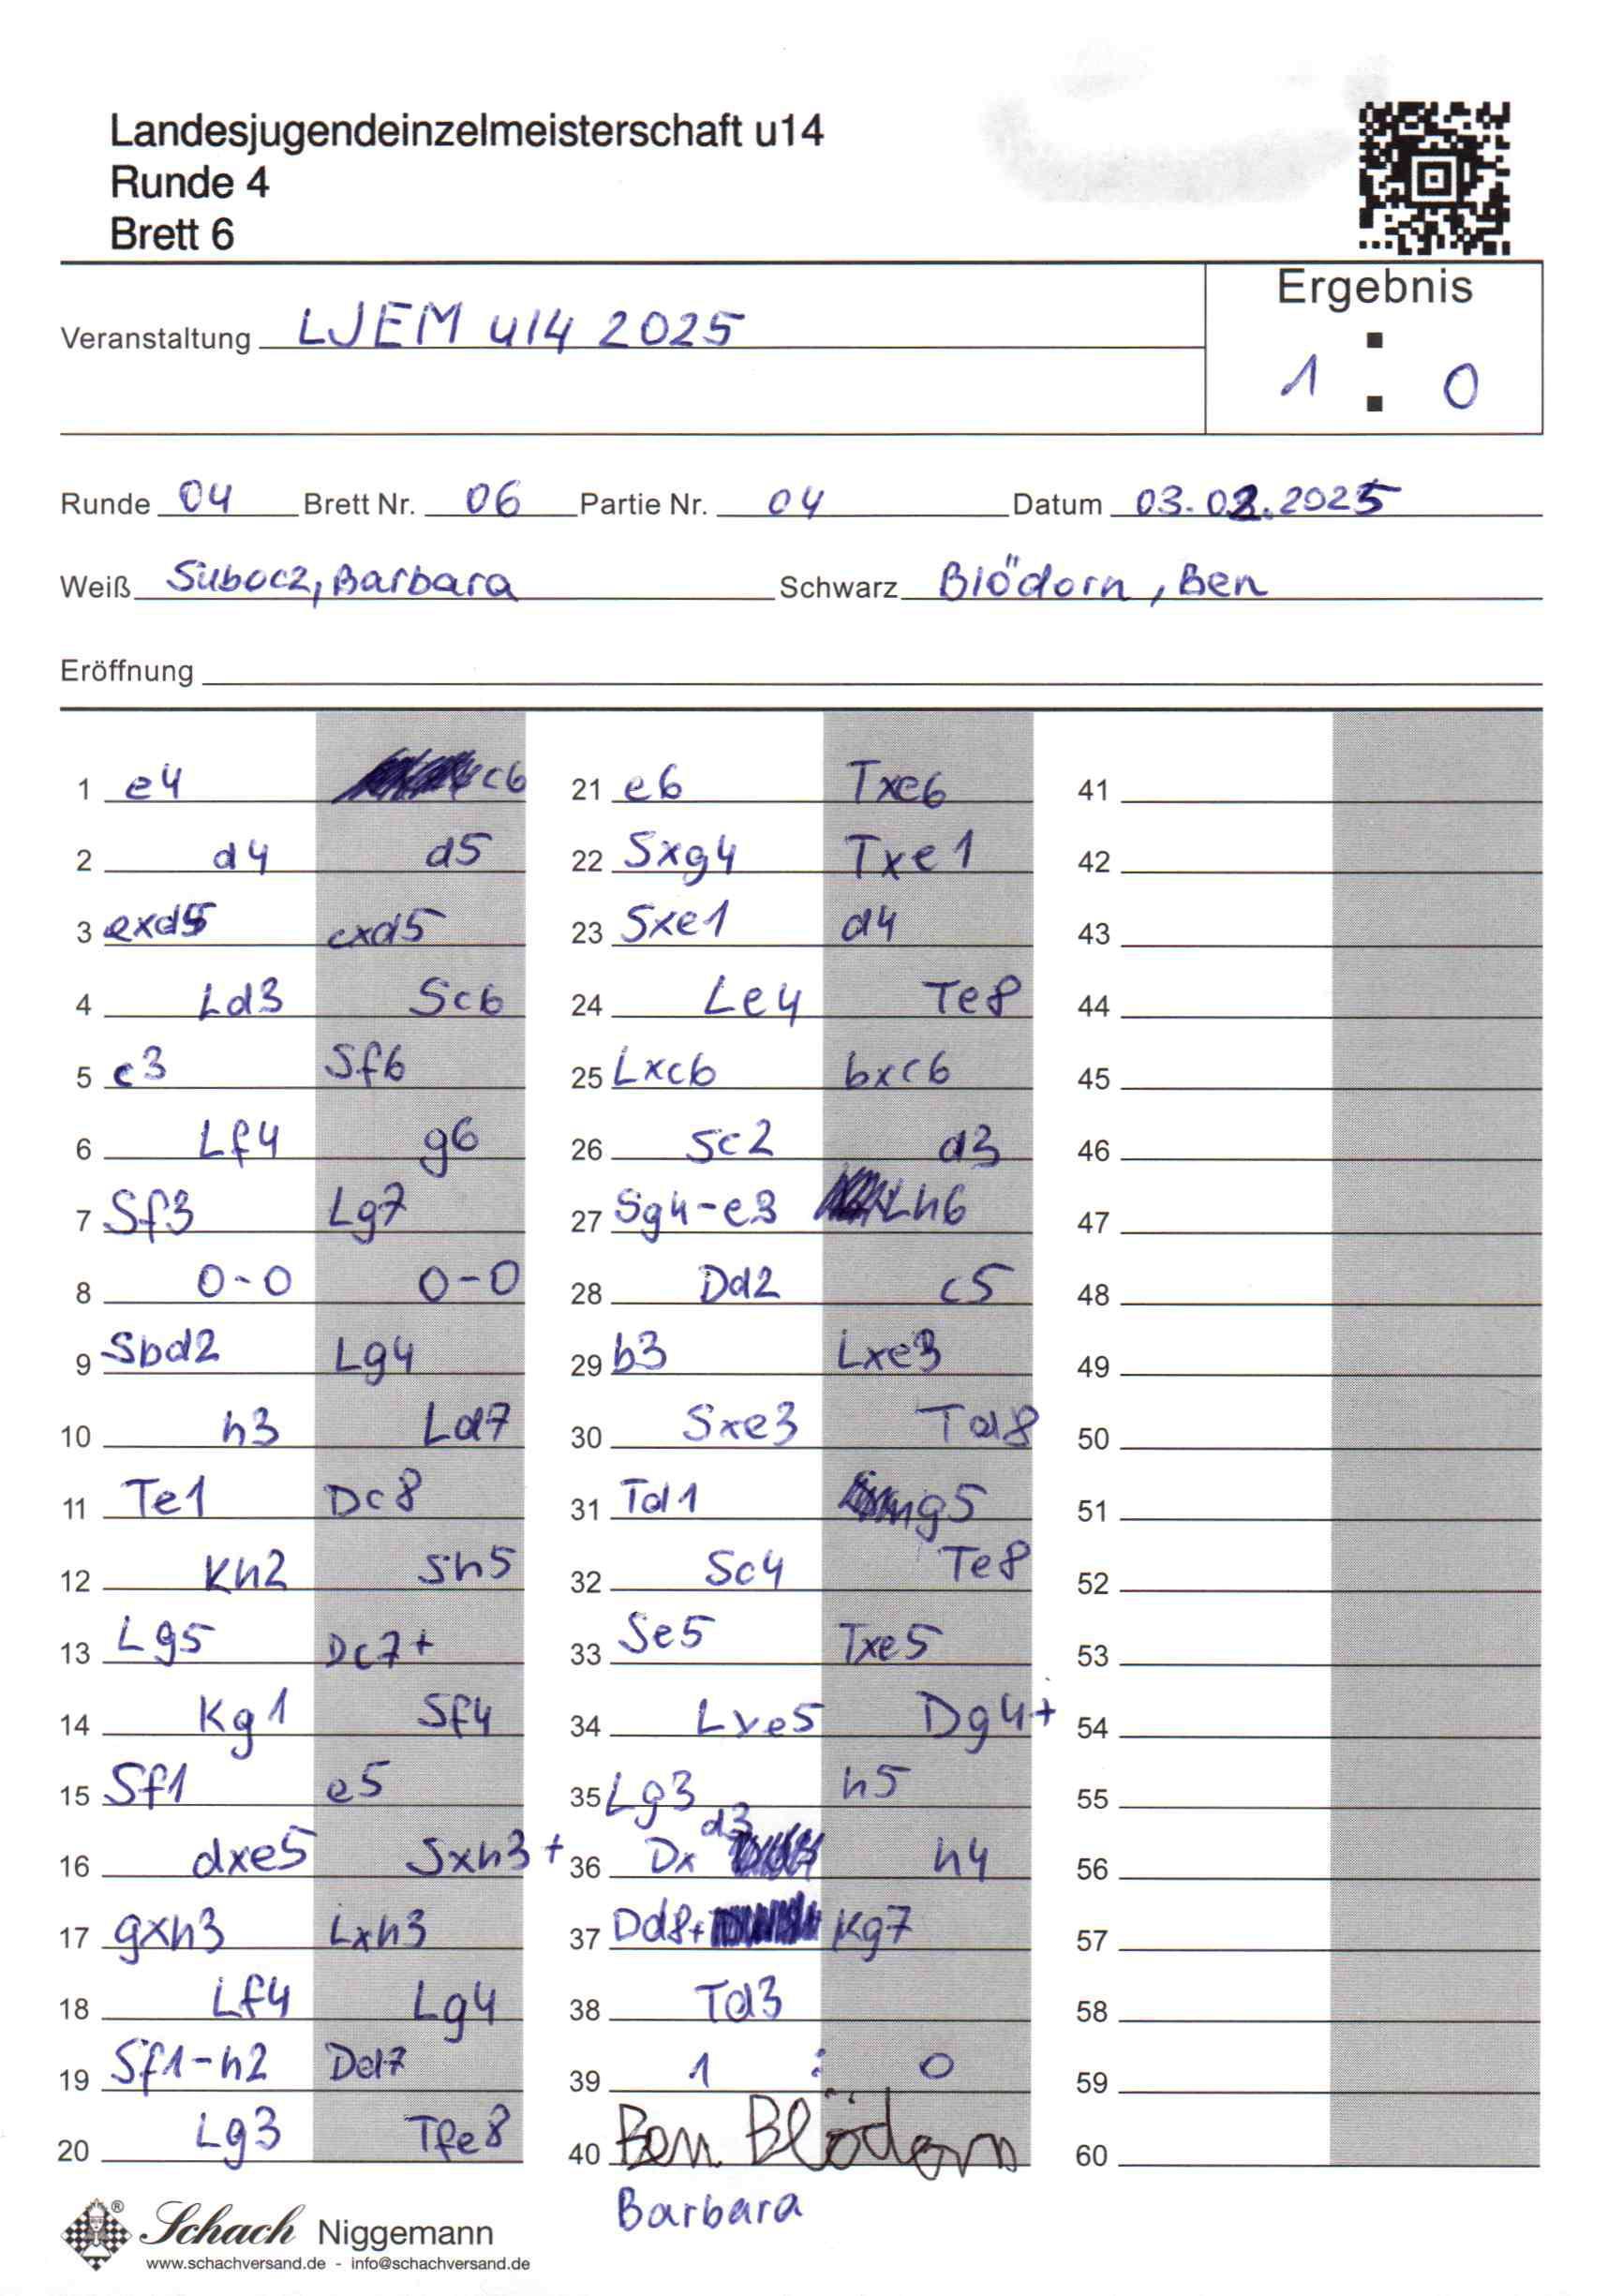 Landesjugendeinzelmeisterschaft u14
Runde 4
Brett 6
Ergebnis
Veranstaltung LJEM u14 2025
1 : 0
Runde 04 Brett Nr. 06 Partie Nr. 04 Datum 03.02.2025
Weiß Subocz, Barbara Schwarz Blödorn, Ben
Eröffnung
1 e4 c6
2 d4 d5
3 exd5 cxd5
4 Ld3 Sc6
5 c3 Sf6
6 Lf4 g6
7 Sf3 Lg7
8 0-0 0-0
9 Sbd2 Lg4
10 h3 Ld7
11 Te1 Dc8
12 Kh2 Sh5
13 Lg5 Dc7+
14 Kg1 Sf4
15 Sf1 e5
16 dxe5 Sxh3+
17 gxh3 Lxh3
18 Lf4 Lg4
19 Sf1-h2 Dd7
20 Lg3 Tfe8
21 e6 Txe6
22 Sxg4 Txe1
23 Sxe1 d4
24 Le4 Te8
25 Lxc6 bxc6
26 Sc2 d3
27 Sg4-e3 Lh6
28 Dd2 c5
29 b3 Lxe3
30 Sxe3 Td8
31 Td1 g5
32 Sc4 Te8
33 Se5 Txe5
34 Lxe5 Dg4+
35 Lg3 h5
36 Dxd3 h4
37 Dd8+ Kg7
38 Td3
39 1 : 0
40 Ben Blödorn
Barbara
41
42
43
44
45
46
47
48
49
50
51
52
53
54
55
56
57
58
59
60
Schach Niggemann
www.schachversand.de - info@schachversand.de